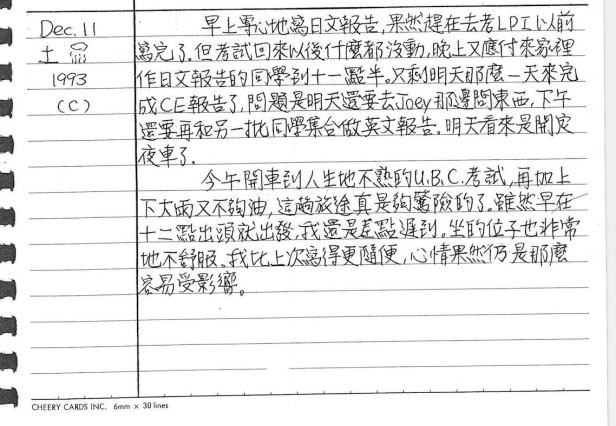 Dec. 11
土
1993
(C)
早上專心地寫日文報告，果然趕在去考LPI以前
寫完了。但考試回來以後什麼都沒動，晚上又應付來家裡
作日文報告的同學到十一點半。只剩明天那麼一天來完
成CE報告了，問題是明天還要去Joey那邊問東西，下午
還要再和另一批同學集合做英文報告。明天看來是開定
夜車了。
今午開車到人生地不熟的U.B.C.考試，再加上
下大雨又不夠油，這趟旅途真是夠驚險的了。雖然早在
十二點出頭就出發，我還是差點遲到。坐的位子也非常
地不舒服。我比上次寫得更隨便，心情果然仍是那麼
容易受影響。
CHEERY CARDS INC. 6mm × 30 lines